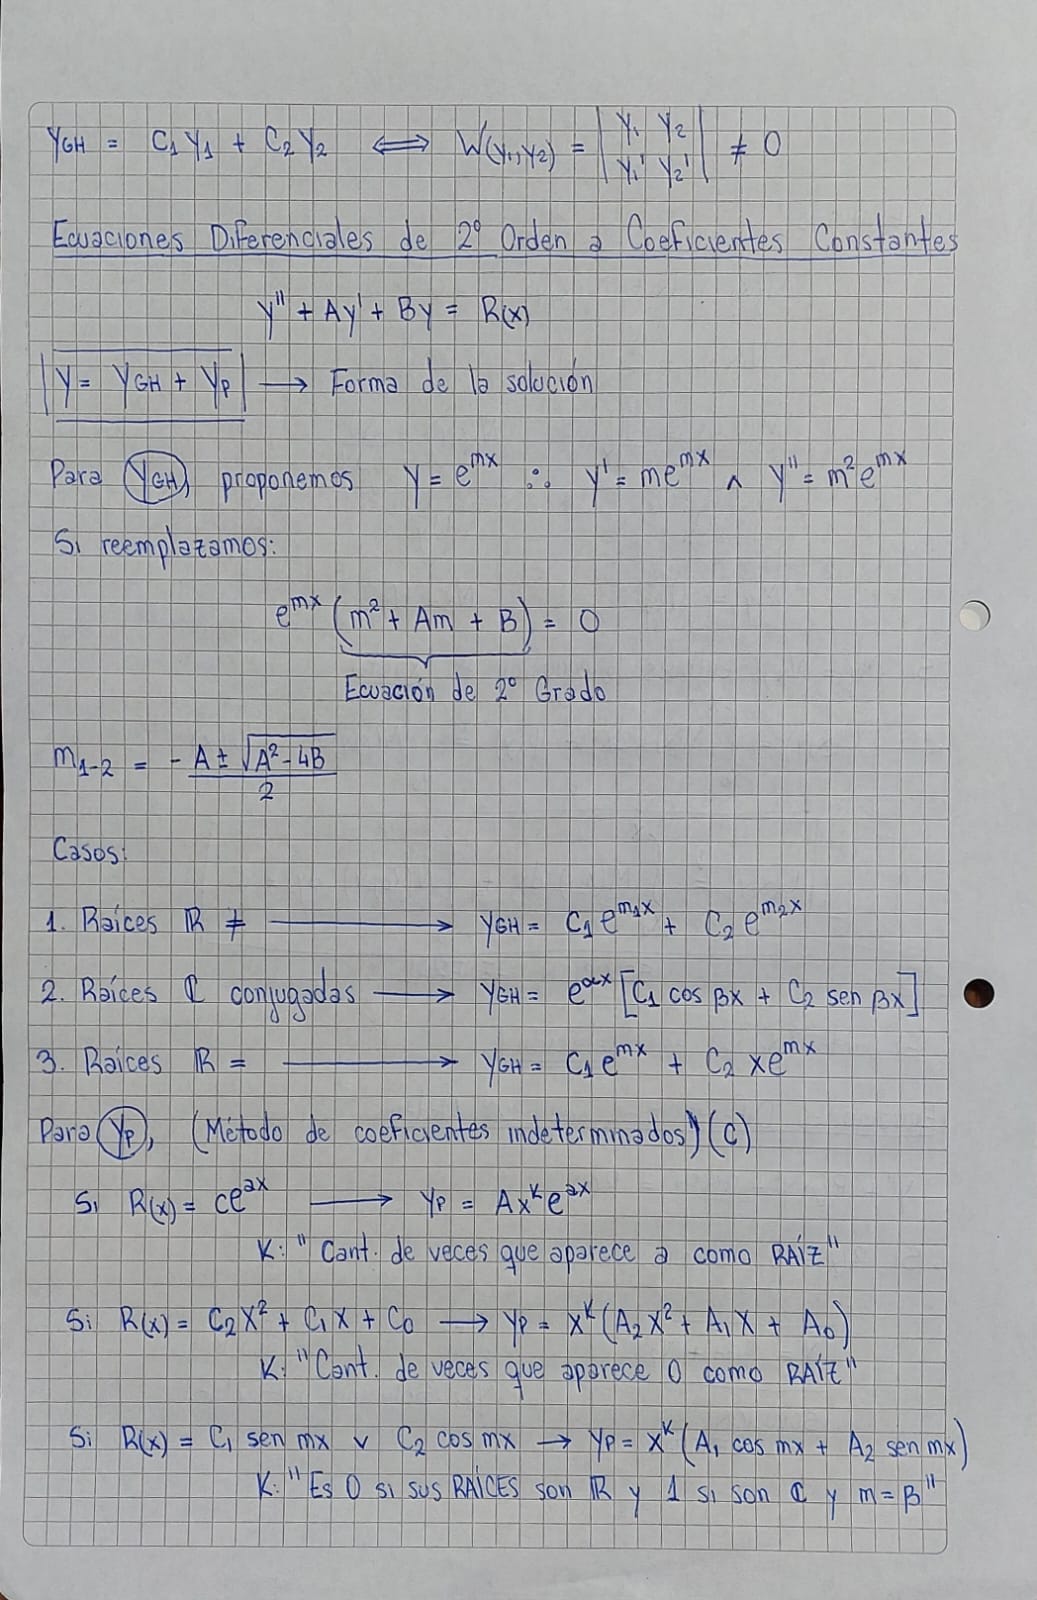 Y_GH = C₁Y₁ + C₂Y₂ ⟺ W(Y₁,Y₂) = | Y₁ Y₂ ; Y₁' Y₂' | ≠ 0
Ecuaciones Diferenciales de 2° Orden a Coeficientes Constantes
y'' + Ay' + By = R(x)
Y = Y_GH + Y_P → Forma de la solución
Para Y_GH, proponemos y = e^{mx} ∴ y' = me^{mx} ∧ y'' = m²e^{mx}
Si reemplazamos:
e^{mx} (m² + Am + B) = 0
Ecuación de 2° Grado
m₁₋₂ = -A ± √(A² - 4B) / 2
Casos:
1. Raíces ℝ ≠ → Y_GH = C₁e^{m₁x} + C₂e^{m₂x}
2. Raíces ℂ conjugadas → Y_GH = e^{αx} [C₁ cos βx + C₂ sen βx]
3. Raíces ℝ = → Y_GH = C₁e^{mx} + C₂xe^{mx}
Para Y_P, (Método de coeficientes indeterminados) (C)
Si R(x) = ce^{ax} → Y_P = Ax^k e^{ax}
K: "Cant. de veces que aparece a como RAÍZ"
Si R(x) = C₂x² + C₁x + C₀ → Y_P = x^k (A₂x² + A₁x + A₀)
K: "Cant. de veces que aparece 0 como RAÍZ"
Si R(x) = C₁ sen mx ∨ C₂ cos mx → Y_P = x^k (A₁ cos mx + A₂ sen mx)
K: "Es 0 si sus RAÍCES son ℝ y 1 si son ℂ y m = β"